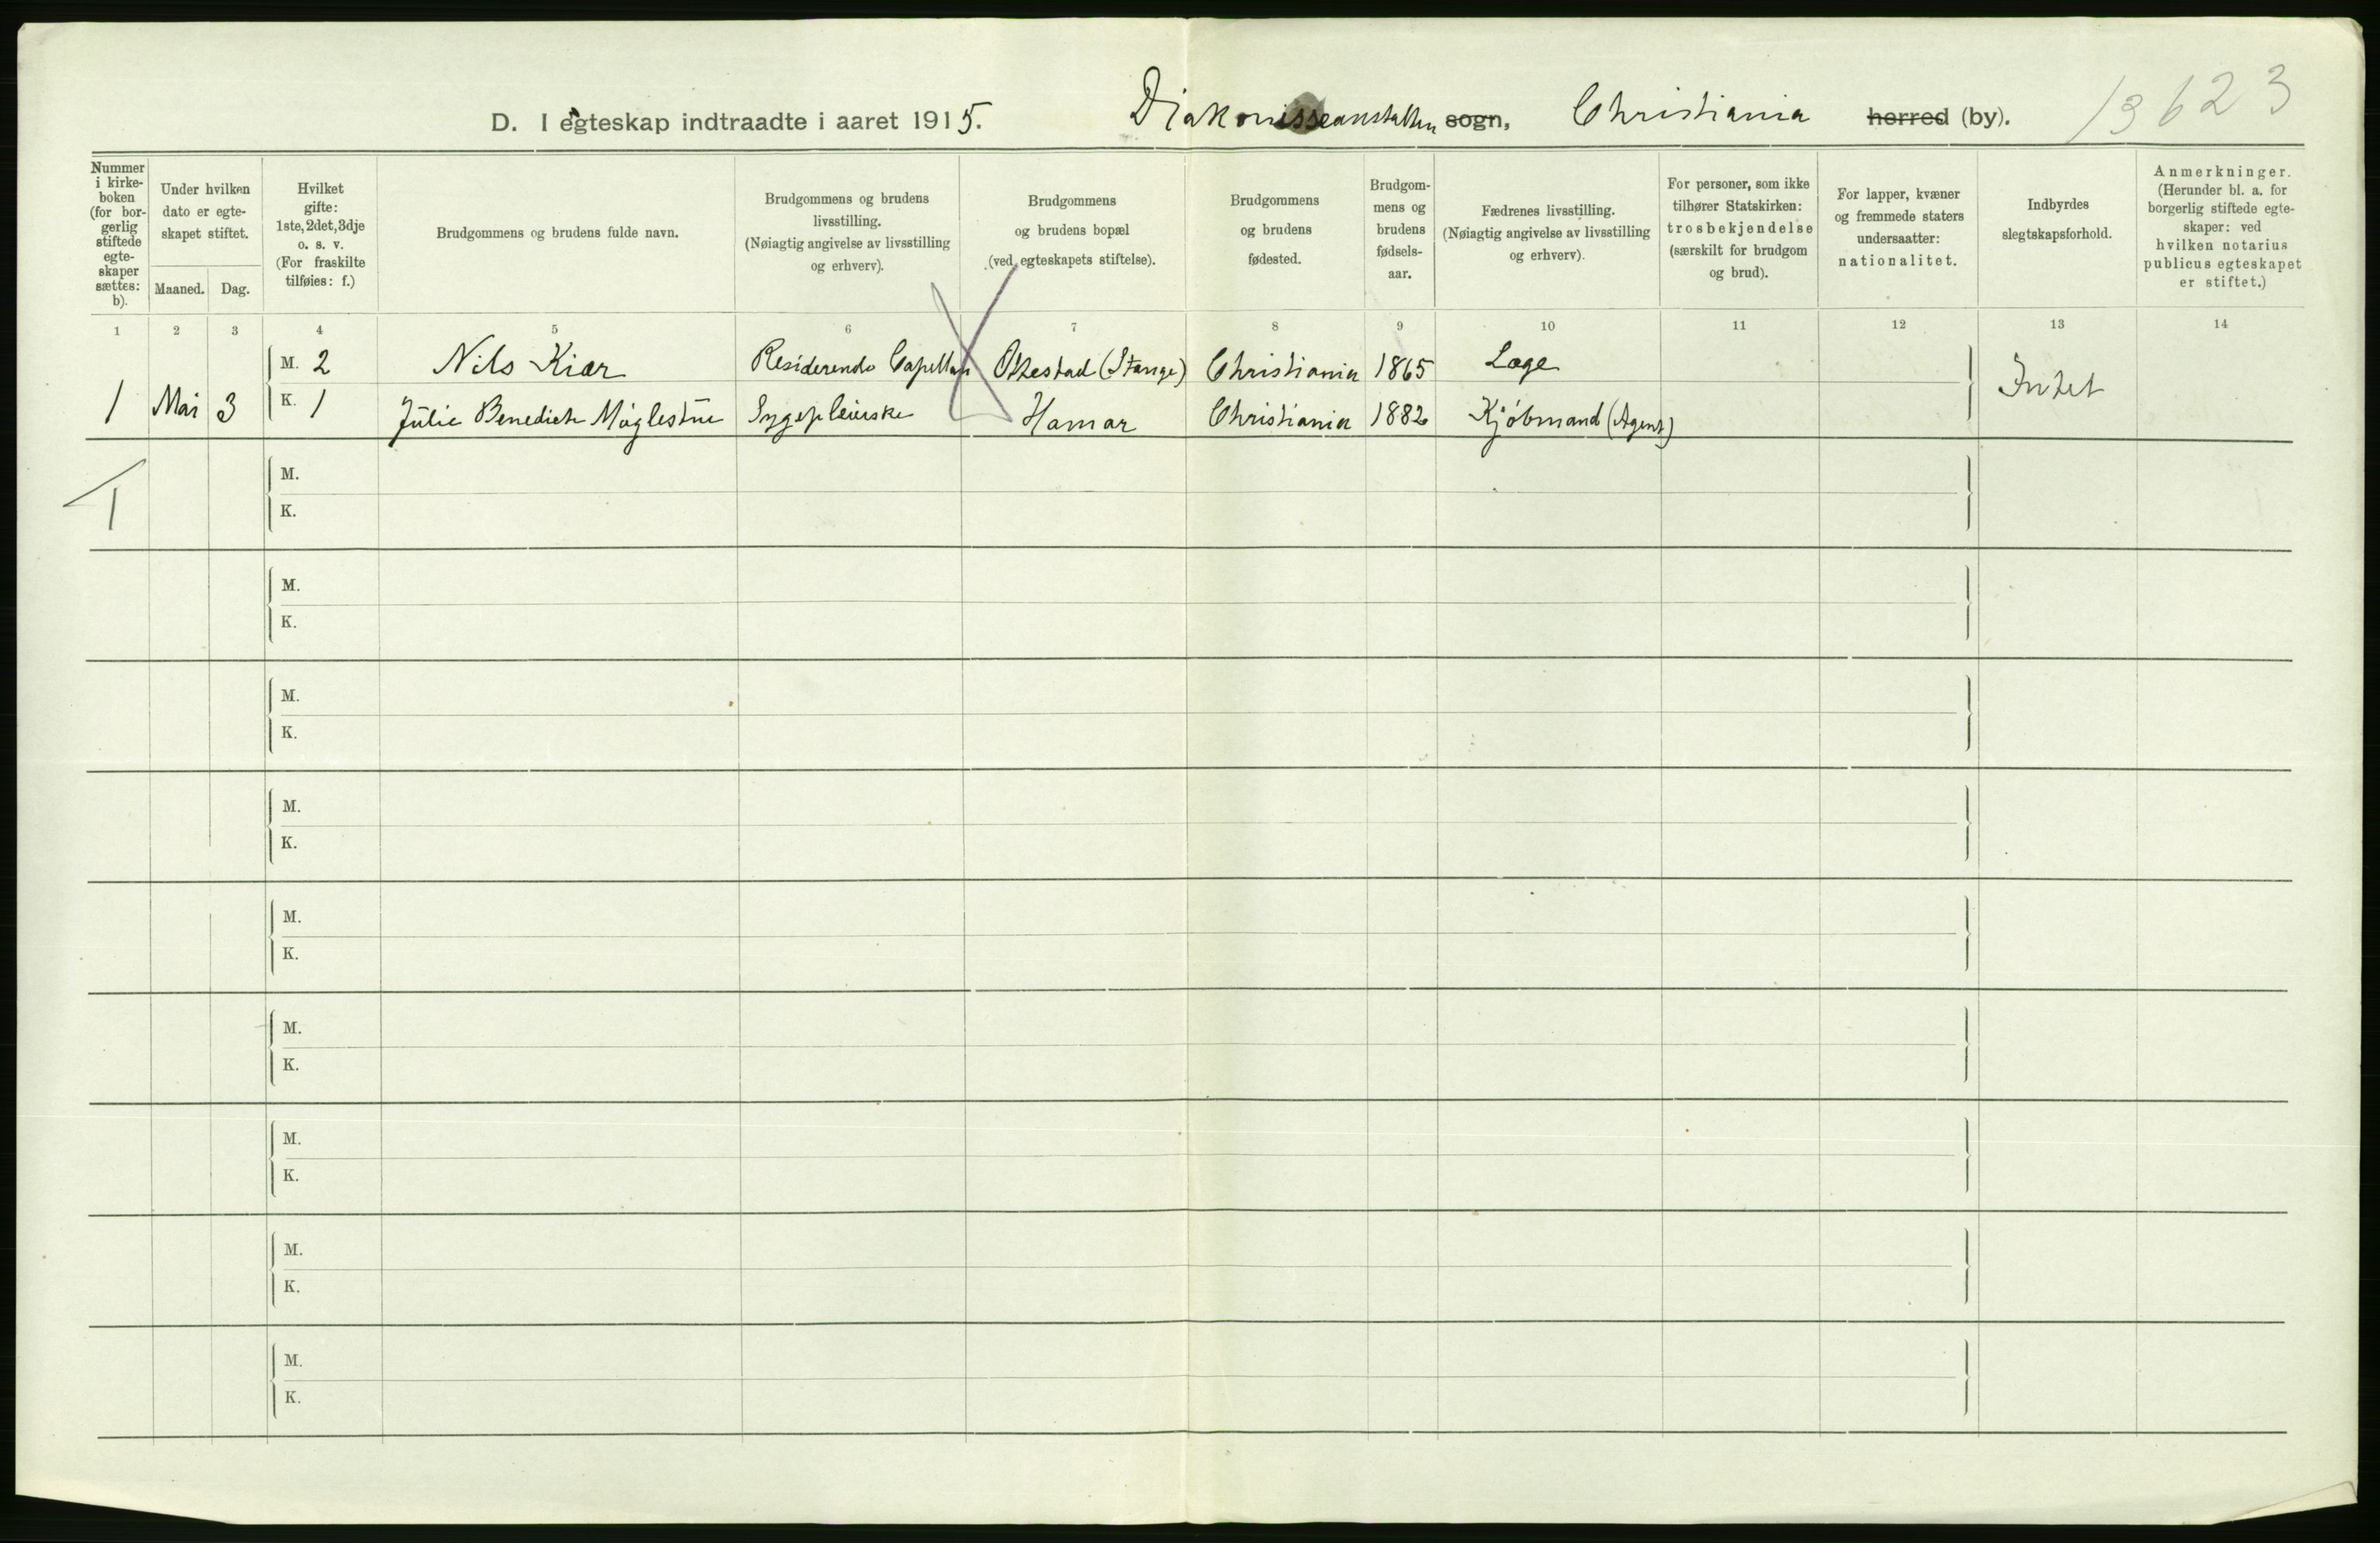 D. I egteskap indtraadte i aaret 1915. Diakonisseanstalten sogn, Christiania herred (by). 13623
Nummer i kirke- boken (for bor- gerlig stiftede egte- skaper sættes: b).
Under hvilken dato er egte- skapet stiftet.
Maaned. Dag.
Hvilket gifte: 1ste, 2det, 3dje o. s. v. (For fraskilte tilføies: f.)
Brudgommens og brudens fulde navn.
Brudgommens og brudens livsstilling. (Nøiagtig angivelse av livsstilling og erhverv).
Brudgommens og brudens bopæl (ved egteskapets stiftelse).
Brudgommens og brudens fødested.
Brudgom- mens og brudens fødsels- aar.
Fædrenes livsstilling. (Nøiagtig angivelse av livsstilling og erhverv).
For personer, som ikke tilhører Statskirken: trosbekjendelse (særskilt for brudgom og brud).
For lapper, kvæner og fremmede staters undersaatter: nationalitet.
Indbyrdes slegtskapsforhold.
Anmerkninger. (Herunder bl. a. for borgerlig stiftede egte- skaper: ved hvilken notarius publicus egteskapet er stiftet.)
1 2 3 4 5 6 7 8 9 10 11 12 13 14
M. 2 Nils Kiær Residerende Capellan Ottestad (Stange) Christiania 1865 Læge
1 Mai 3 K. 1 Julie Benedicte Møglestue Sygepleierske Hamar Christiania 1882 Kjøbmand (Agent) Intet
M.
1 K.
M.
K.
M.
K.
M.
K.
M.
K.
M.
K.
M.
K.
M.
K.
M.
K.